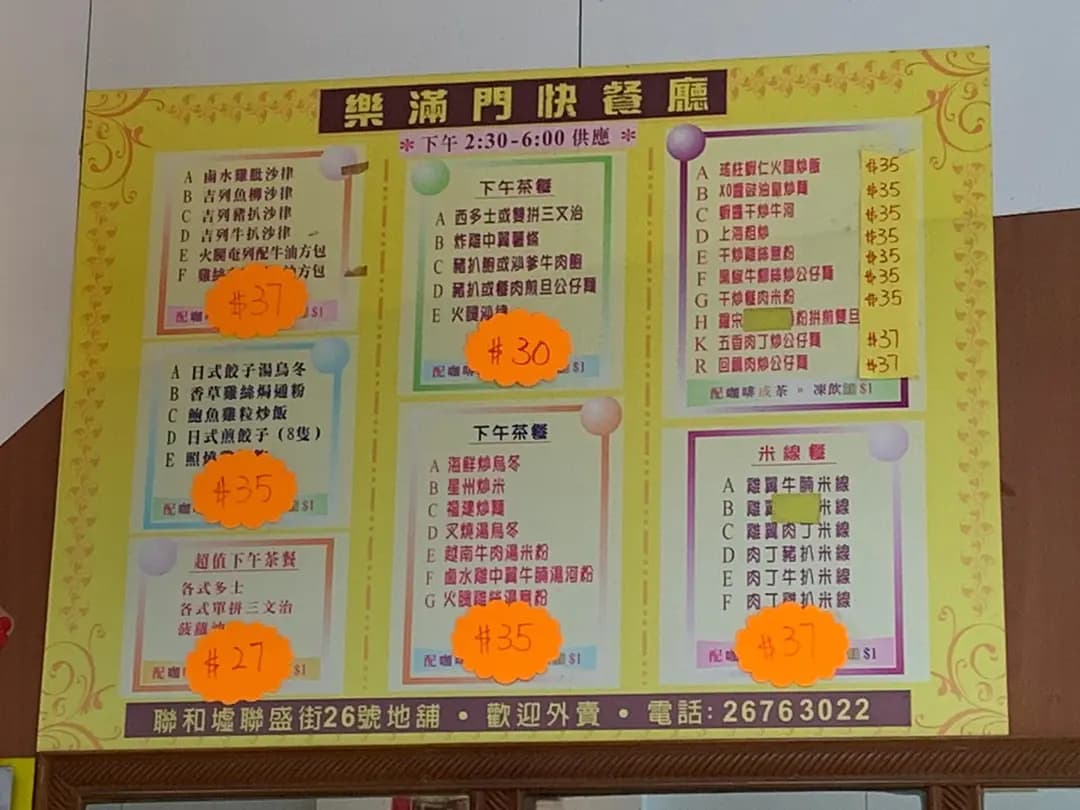 樂滿門快餐廳
*下午 2:30-6:00 供應*
A 鹵水雞髀沙律
B 吉列魚柳沙律
C 吉列豬扒沙律
D 吉列牛扒沙律
E 火腿奄列配牛油方包
F 雞絲 方包
$37
配咖 $1
A 日式餃子湯烏冬
B 香草雞絲焗通粉
C 鮑魚雞粒炒飯
D 日式煎餃子(8隻)
E 照燒
$35
配咖 $1
超值下午茶餐
各式多士
各式單拼三文治
菠蘿油
$27
配咖 $1
下午茶餐
A 西多士或雙拼三文治
B 炸雞中翼薯條
C 豬扒飽或沙爹牛肉飽
D 豬扒或餐肉煎旦公仔麵
E 火腿沙律
$30
配咖啡 $1
下午茶餐
A 海鮮炒烏冬
B 星州炒米
C 福建炒麵
D 叉燒湯烏冬
E 越南牛肉湯米粉
F 鹵水雞中翼牛腩湯河粉
G 火腿雞絲湯意粉
$35
配咖 $1
A 瑤柱蝦仁火腿炒飯 $35
B XO醬豉油皇炒麵 $35
C 蝦醬干炒牛河 $35
D 上海粗炒 $35
E 干炒雞絲意粉 $35
F 黑椒牛柳絲炒公仔麵 $35
G 干炒餐肉米粉 $35
H 羅宋 粉拼煎雙旦
K 五香肉丁炒公仔麵 $37
R 回鍋肉炒公仔麵 $37
配咖啡或茶。凍飲加$1
米線餐
A 雞翼牛腩米線
B 雞翼 米線
C 雞翼肉丁米線
D 肉丁豬扒米線
E 肉丁牛扒米線
F 肉丁雞扒米線
$37
配咖 $1
聯和墟聯盛街26號地舖 • 歡迎外賣 • 電話: 26763022